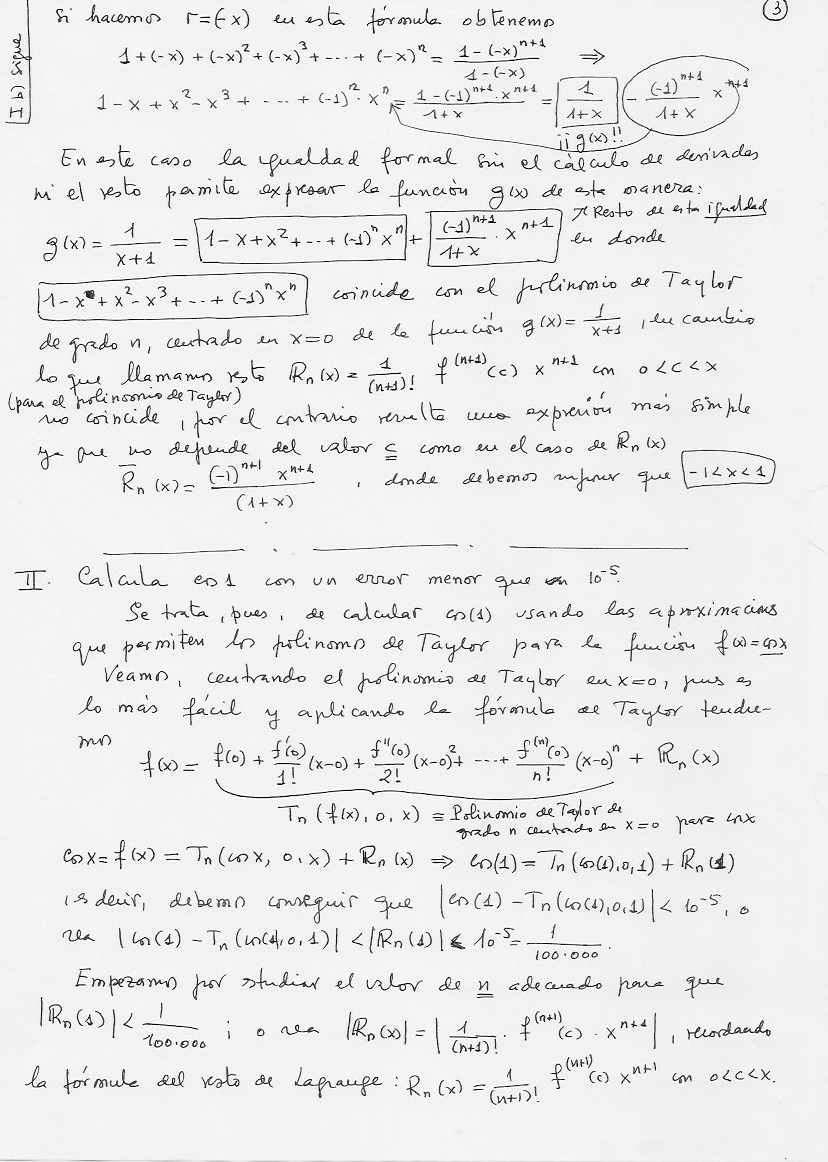 3
I b) sigue
Si hacemos r=(-x) en esta fórmula obtenemos
1+(-x)+(-x)²+(-x)³+----+(-x)ⁿ = (1-(-x)ⁿ⁺¹)/(1-(-x)) ⇒
1-x+x²-x³+----+(-1)ⁿ·xⁿ = (1-(-1)ⁿ⁺¹·xⁿ⁺¹)/(1+x) = 1/(1+x) - (-1)ⁿ⁺¹/(1+x) xⁿ⁺¹
¡¡g(x)!!
En este caso la igualdad formal sin el cálculo de derivadas
ni el resto permite expresar la función g(x) de esta manera:
g(x) = 1/(x+1) = 1-x+x²+--+(-1)ⁿxⁿ + (-1)ⁿ⁺¹/(1+x)·xⁿ⁺¹ ↗ Resto de esta igualdad
en donde
1-x+x²-x³+--+(-1)ⁿxⁿ coincide con el polinomio de Taylor
de grado n, centrado en x=0 de la función g(x)=1/(x+1), en cambio
lo que llamamos resto Rₙ(x)= 1/(n+1)! f⁽ⁿ⁺¹⁾(c) xⁿ⁺¹ con 0<c<x
(para el polinomio de Taylor)
no coincide, por el contrario resulta una expresión más simple
ya que no depende del valor c como en el caso de Rₙ(x)
R̄ₙ(x) = (-1)ⁿ⁺¹ xⁿ⁺¹/(1+x), donde debemos suponer que -1<x<1
II. Calcula cos1 con un error menor que 10⁻⁵.
Se trata, pues, de calcular cos(1) usando las aproximacions
que permiten los polinomos de Taylor para la función f(x)=cosx
Veamos, centrando el polinomio de Taylor en x=0, pues es
lo más fácil y aplicando la fórmula de Taylor tendre-
mos
f(x) = f(0) + f'(0)/1! (x-0) + f''(0)/2! (x-0)² + ---+ f⁽ⁿ⁾(0)/n! (x-0)ⁿ + Rₙ(x)
Tₙ(f(x),0,x) ≡ Polinomio de Taylor de
grado n centrado en x=0 para cosx
cosx=f(x)=Tₙ(cosx,0,x)+Rₙ(x) ⇒ cos(1)=Tₙ(cos(1),0,1)+Rₙ(1)
, es decir, debemos conseguir que |cos(1)-Tₙ(cos(1),0,1)|<10⁻⁵, o
sea |cos(1)-Tₙ(cos(1),0,1)|<|Rₙ(1)|<10⁻⁵=1/100.000.
Empezamos por studiar el valor de n adecuado para que
|Rₙ(1)|<1/100.000 ; o sea |Rₙ(x)|=|1/(n+1)! · f⁽ⁿ⁺¹⁾(c)·xⁿ⁺¹|, recordando
la fórmula del resto de Lagrange: Rₙ(x)=1/(n+1)! f⁽ⁿ⁺¹⁾(c) xⁿ⁺¹ con 0<c<x.